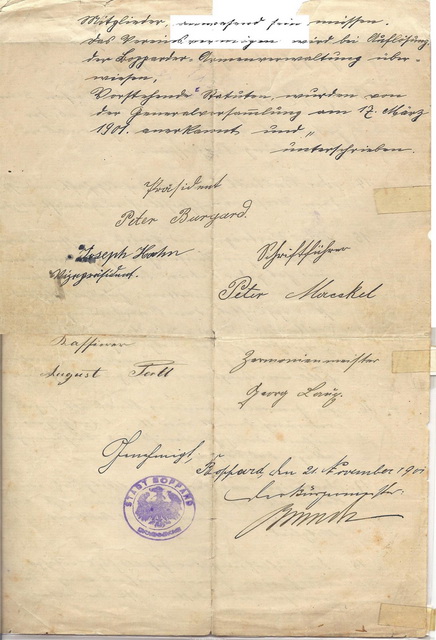 Mitglieder anwesend sein müssen.
Das Vereinsvermögen wird bei Auflösung
der Bopparder-Armenverwaltung über-
wiesen.
Vorstehende Statuten wurden von
der Generalversammlung am 17. März
1901. anerkannt und
unterschrieben.
Präsident
Peter Burgard.
Joseph Hahn
Vizepräsident.
Schriftführer
Peter Maeckel
Kassierer
August
Zermonienmeister
Georg
Genehmigt,
Boppard, den 21. November 1901
Der Bürgermeister.
STADT BOPPARD